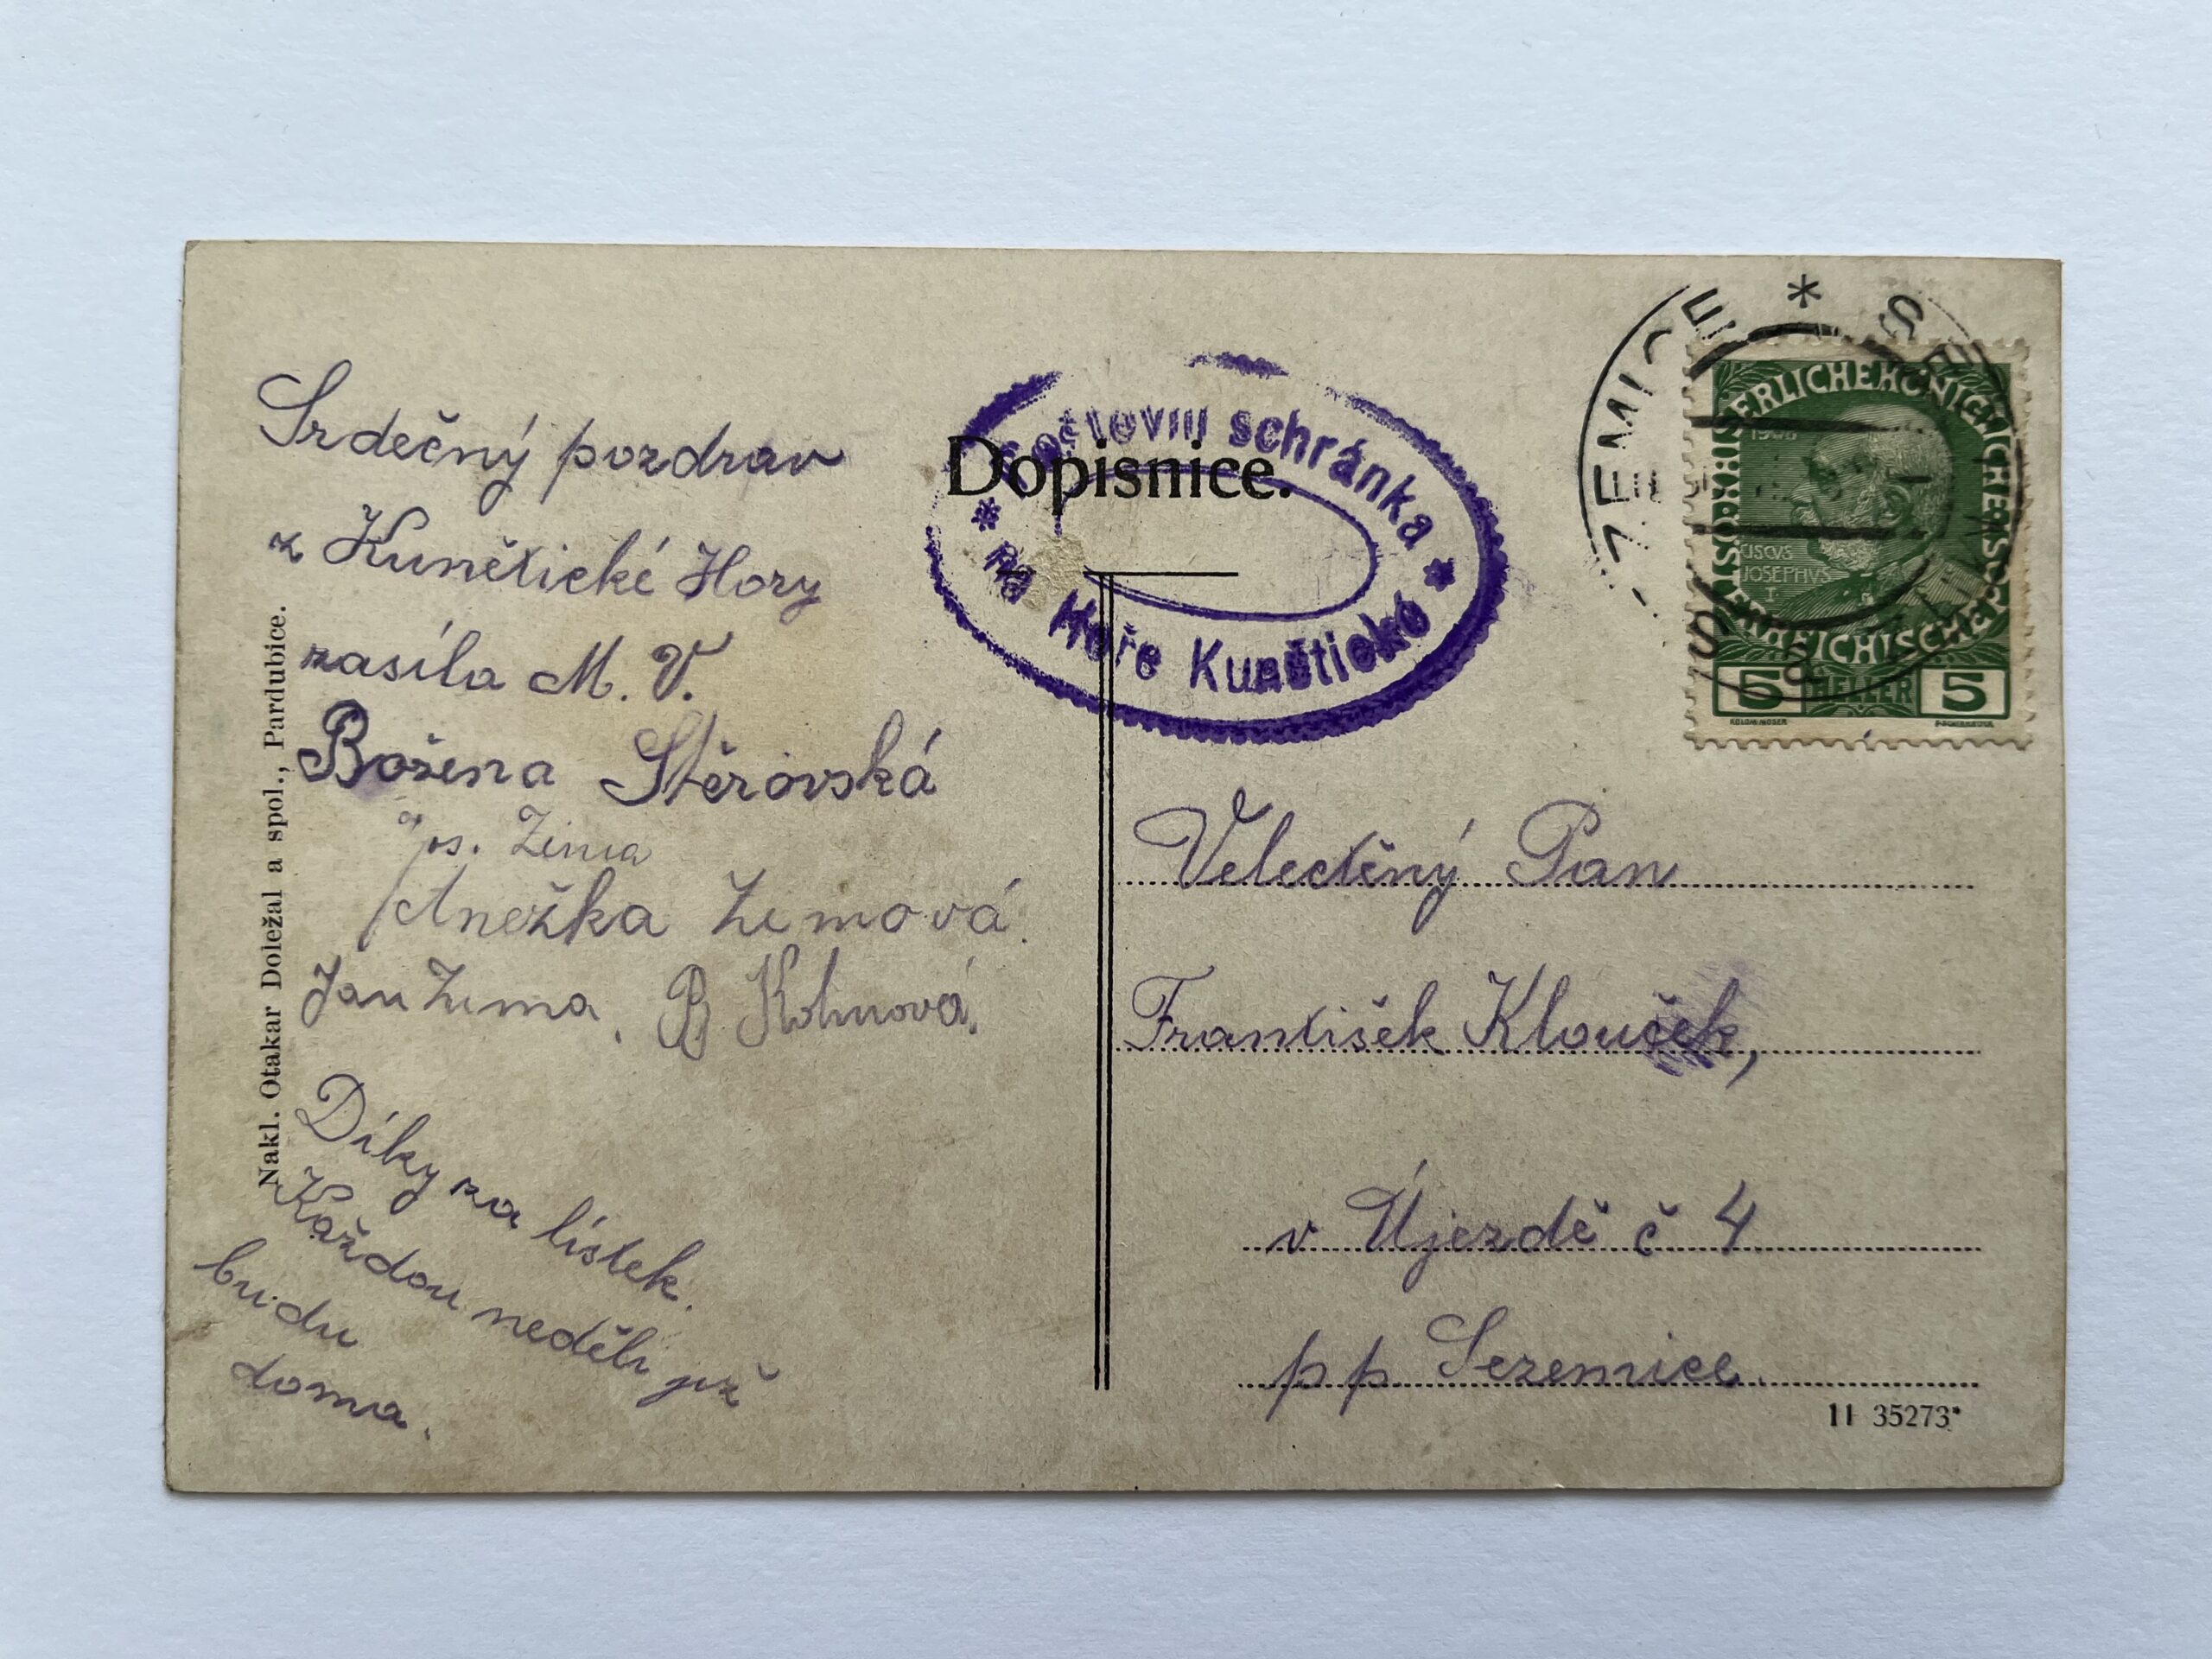 Dopisnice.
Poštovní schránka
* na Hoře Kunětické *
SEZEMICE * SEZEMICE
KAISERLICHE KÖNIGLICHE ÖSTERREICHISCHE POST
1908
CISCVS
JOSEPHVS
I
5 HELLER 5
KOLOM. MOSER
Srdečný pozdrav
z Kunětické Hory
zasíla M. V.
Božena Štěrovská
Jos. Zima
Anežka Zimová.
Jan Zima. B
Díky za lístek.
Každou neděli již
budu
doma.
Nakl. Otakar Doležal a spol., Pardubice.
Velectěný Pan
František Klouček,
v Újezdě č 4
pp Sezemice.
11 35273*